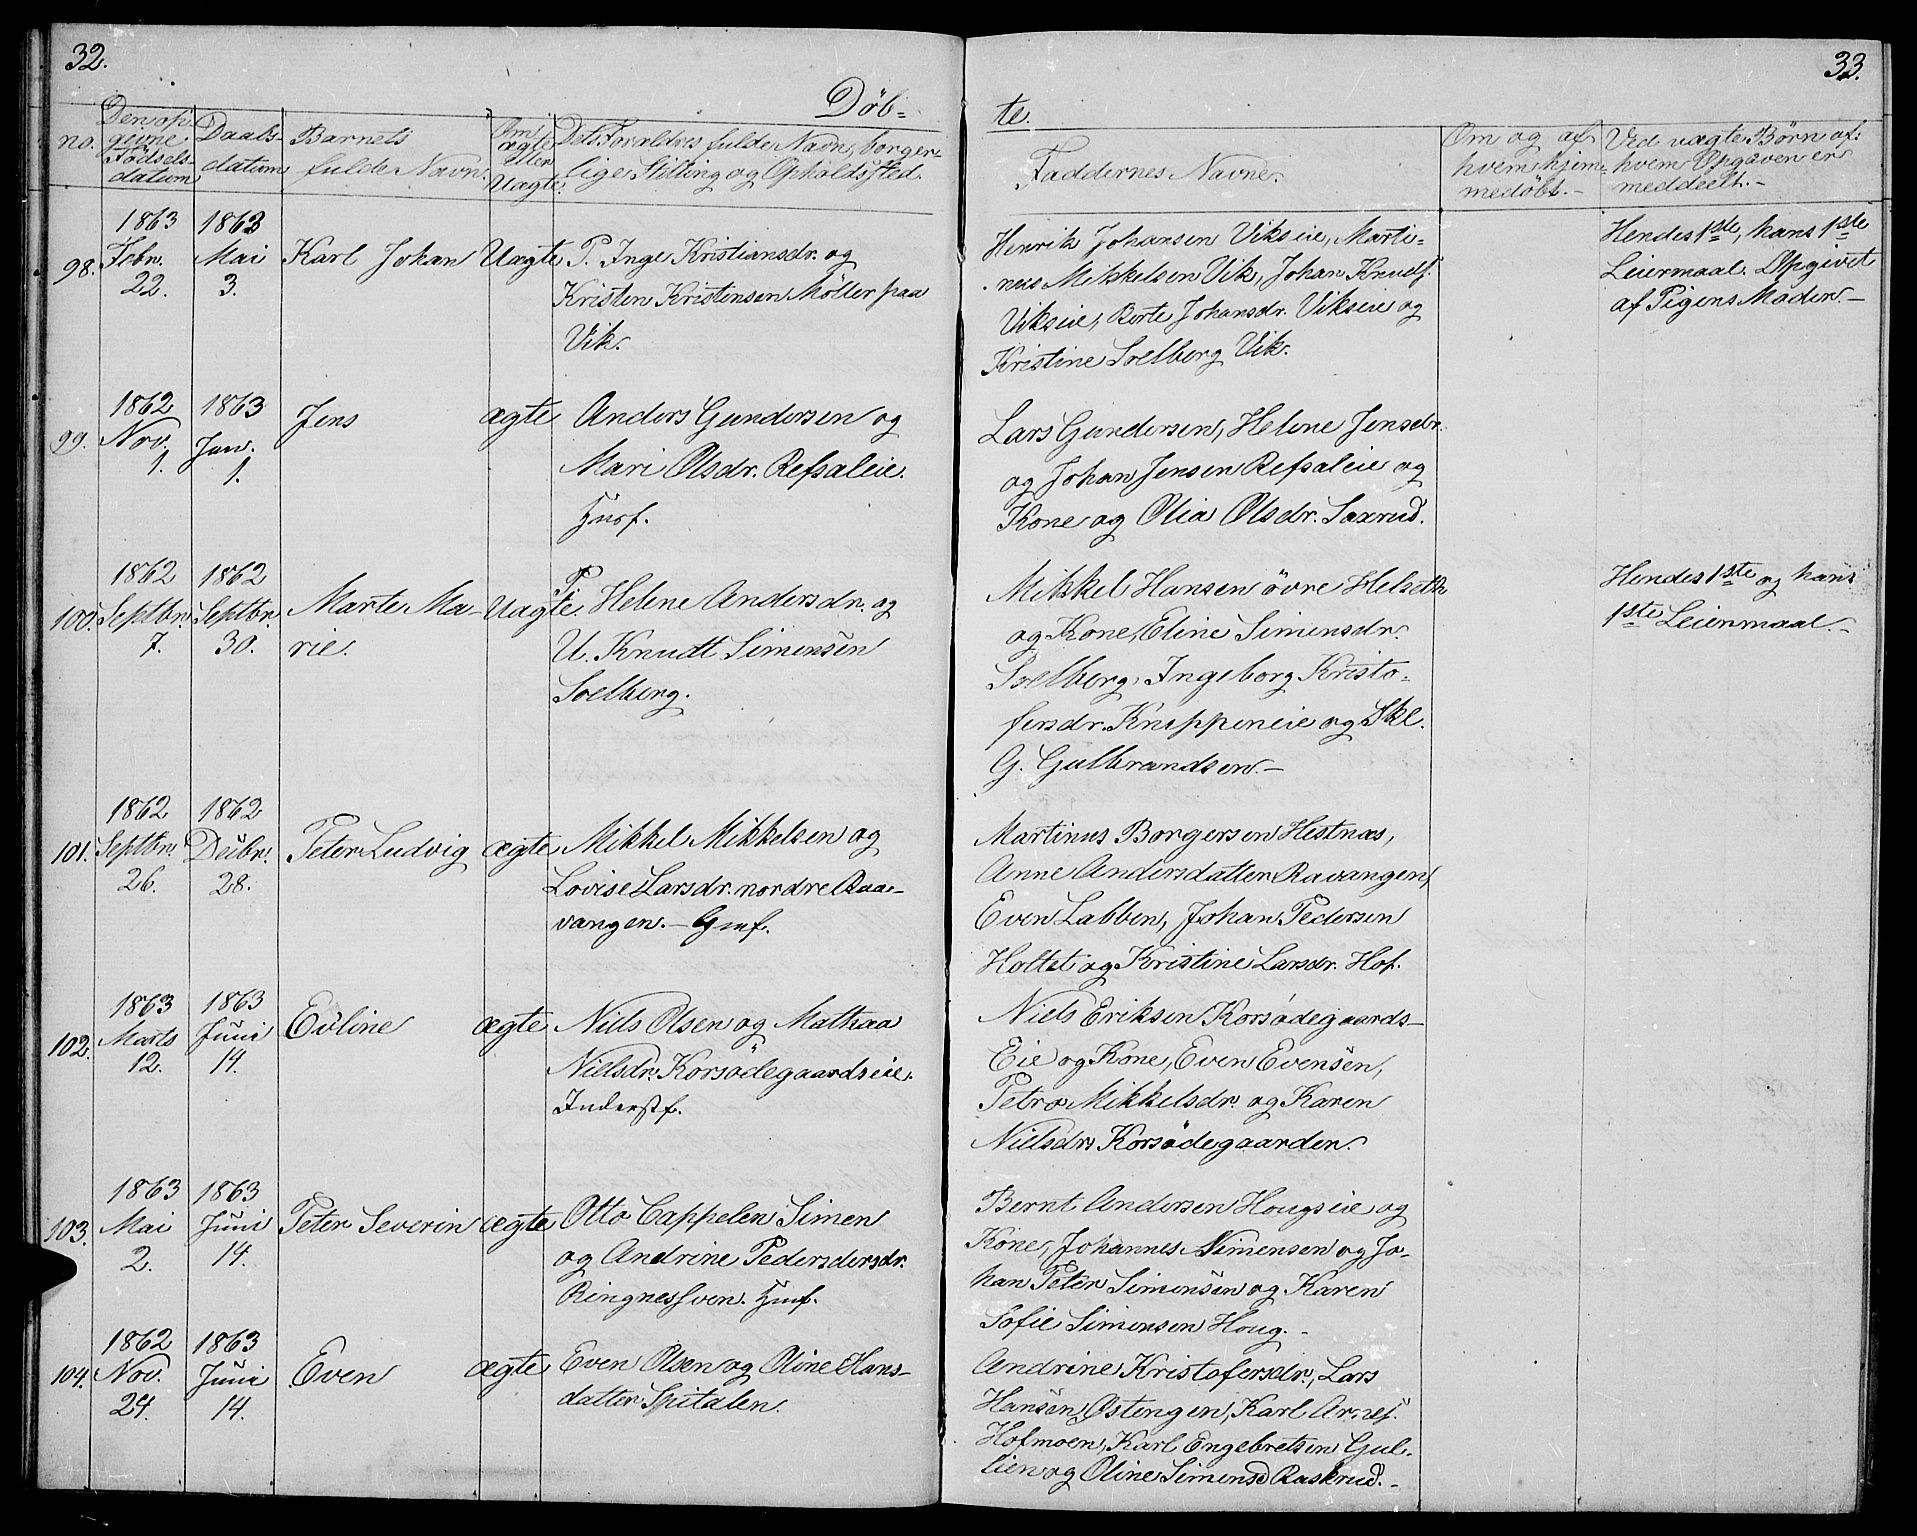 32.
Döb-
no.
Den op-
givne
Fødsels-
datum
Daabs-
datum
Barnets
fulde Navn.
Om
ægte
eller
Uægte.
Dets Forældres fulde Navn, borger-
lige Stilling og Opholdssted.
98.
1863
Febr.
22.
1863
Mai
3.
Karl Johan
Uægte
P. Inge Kristiansdr. og
Kristen Kristensen Möller paa
Vik.
99.
1862
Nov.
1.
1863
Jan.
1.
Jens
ægte
Anders Gundersen og
Mari Olsdr. Refsaleie.
Husf.
100.
1862
Septbr.
7.
1862
Septbr.
30.
Marte Ma-
rie.
Uægte
P. Helene Andersdr. og
U. Knudt Simensen
Soelberg.
101.
1862
Septbr.
26.
1862
Decbr.
28.
Peter Ludvig
ægte
Mikkel Mikkelsen og
Lovise Larsdr. nordre Raa-
vangen. - Gmf.
102.
1863
Marts
12.
1863
Juni
14.
Evline
ægte
Niels Olsen og Mathea
Nielsdr. Korsödegaardseie.
Inderstf.
103.
1863
Mai
2.
1863
Juni
14.
Peter Severin
ægte
Otto Cappelen Simen
og Andrine Pedersdersdr.
Ringnes Sven. Hmf.
104.
1862
Nov.
24.
1863
Juni
14.
Even
ægte
Even Olsen og Oline Hans-
datter Spitalen.
33.
te.
Faddernes Navne.
Om og af
hvem hjem-
medøbt. -
Ved uægte Børn af:
hvem Opgaven er
meddeelt. -
Henrik Johansen Vikseie, Marti-
nus Mikkelsen Vik, Johan Knuds.
Vikseie, Berte Johansdr. Vikseie og
Kristine Soelberg Vik.
Hendes 1ste, hans 1ste
Leiermaal. Opgivet
af Pigens Moder. -
Lars Gundersen, Helene Jensdr.
og Johan Jensen Refsaleie og
Kone og Olia Olsdr. Saxrud.
Mikkel Hansen övre Helseth
og Kone, Eline Simensdr.
Soelberg, Ingeborg Kristo-
fersdr. Knippeneie og Skl.
G. Gulbrandsen. -
Hendes 1ste og hans
1ste Leiermaal. -
Martinus Borgersen Hestnæs,
Anne Andersdatter Ravangen,
Even Labben, Johan Pedersen
Holtet og Kristine Larsdr. Hof.
Niels Eriksen Korsödegaards-
Eie og Kone, Even Evensen,
Petra Mikkelsdr. og Karen
Nielsdr. Korsödegaarden.
Bernt Andersen Hougseie og
Kone, Johannes Simensen og Jo-
han Peter Simensen og Karen
Sofie Simensen Houg. -
Andrine Kristofersdr., Lars
Hansen Østengen, Karl Arnes.
Hofmoen, Karl Engebretsen Gul-
lien og Oline Simensd Raskrud. -